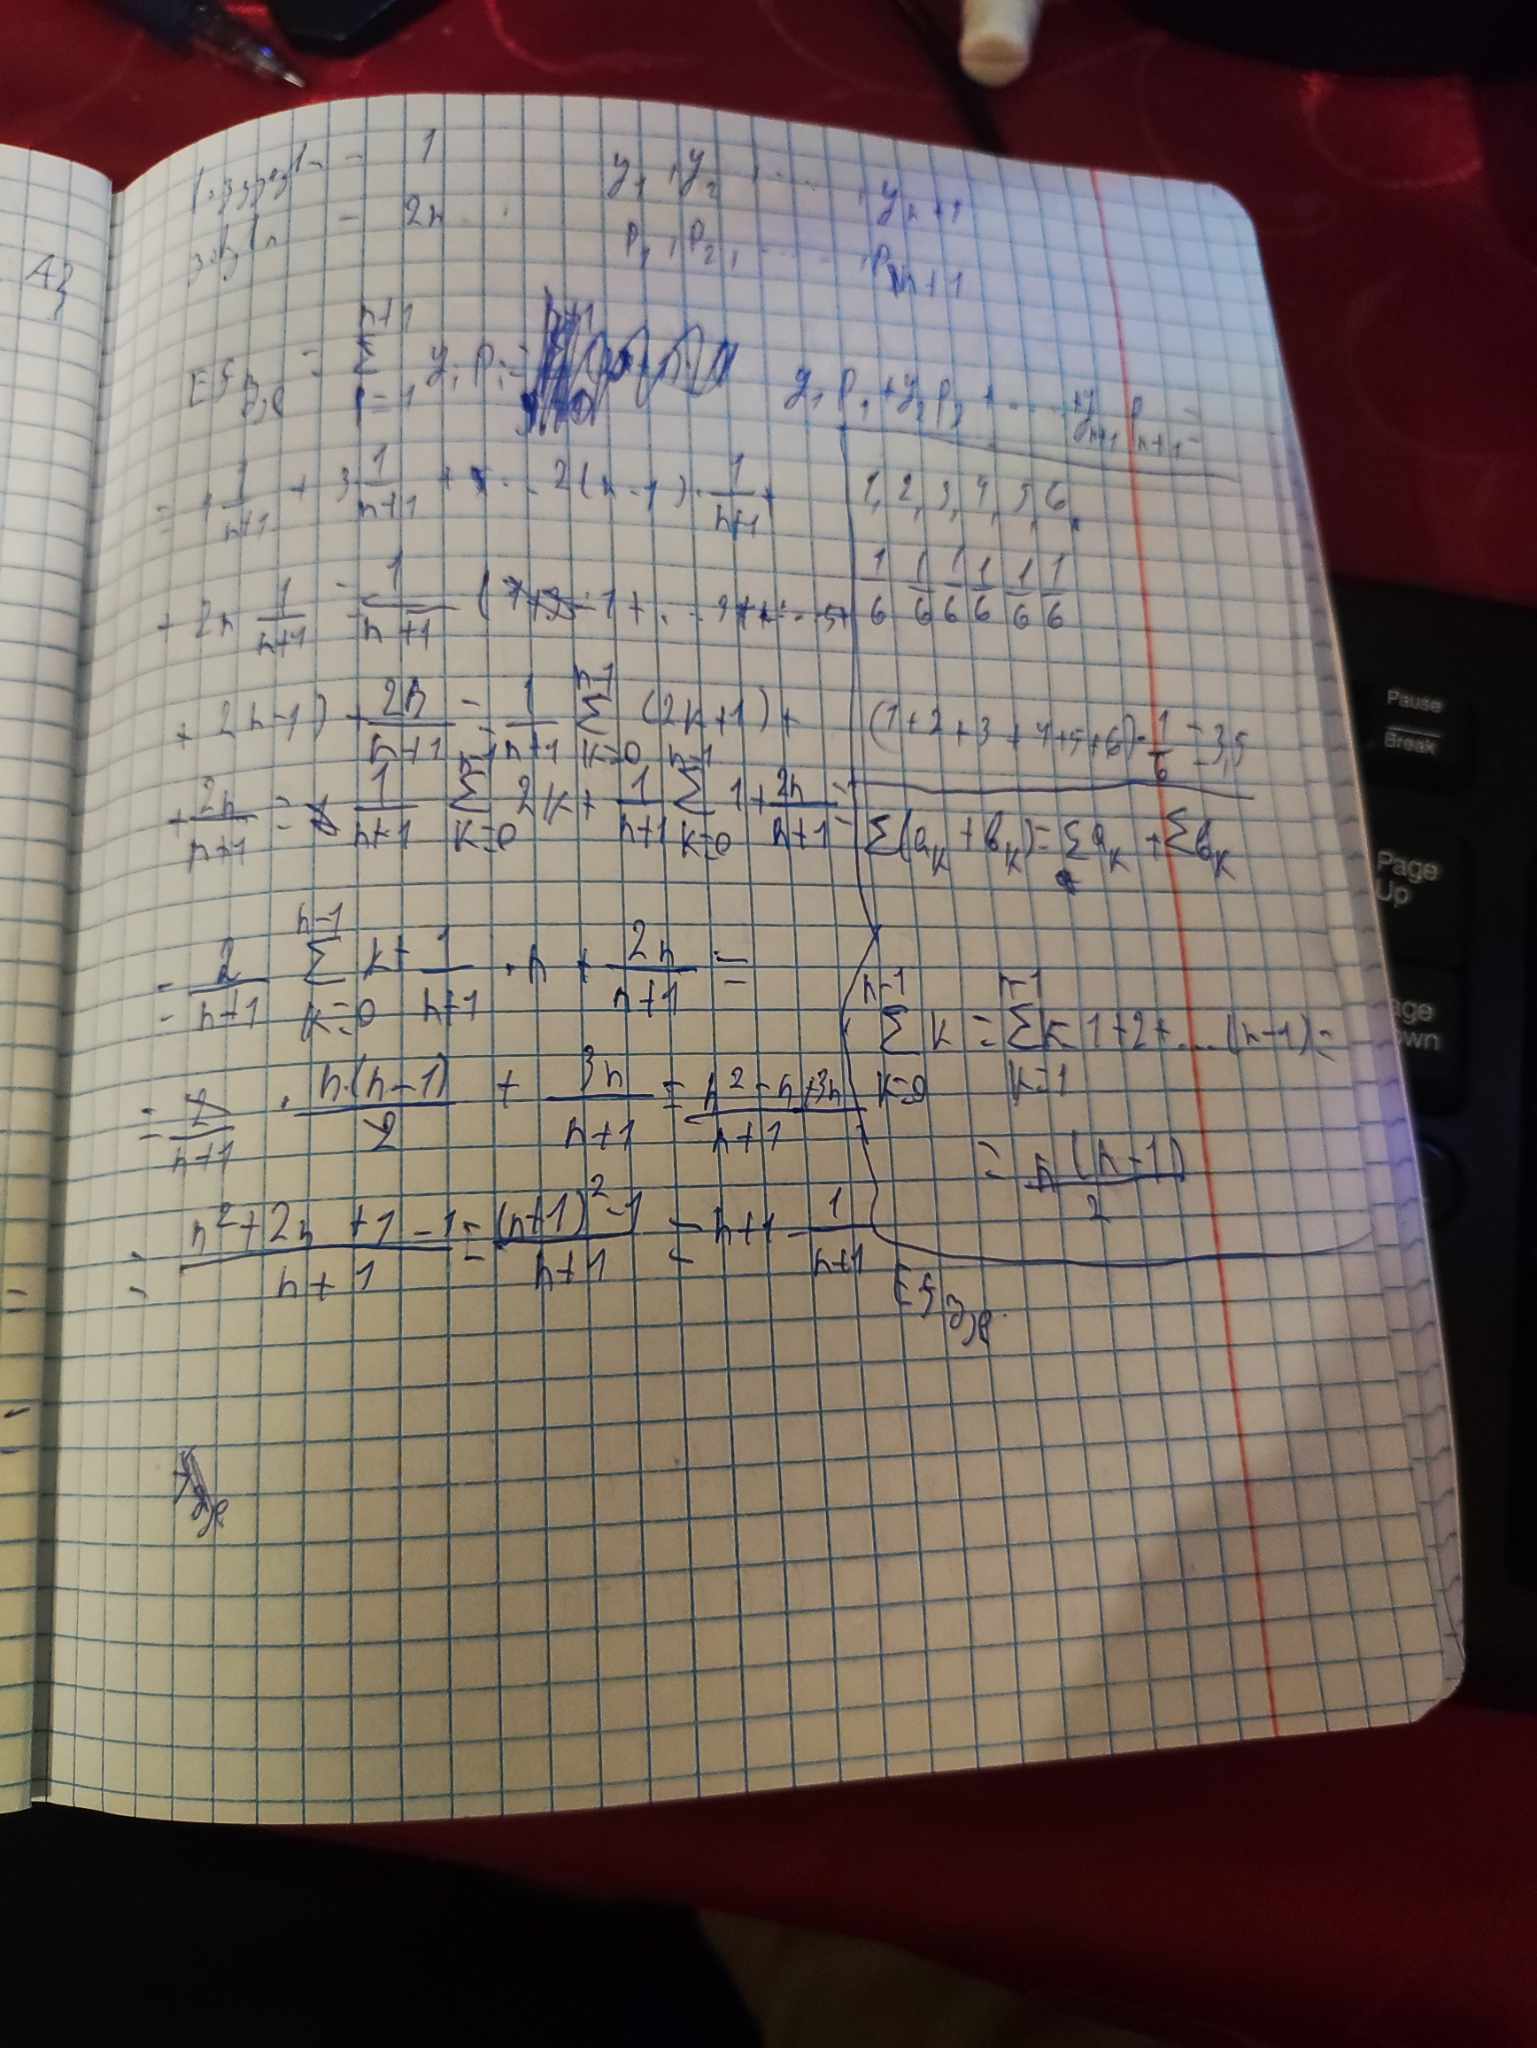 - 1
- 2n
y₁, y₂, ..... , yₙ₊₁
p₁, p₂, ..... , pₙ₊₁
= Σ_{i=1}^{n+1} yᵢ pᵢ =
y₁p₁ + y₂p₂ + ..... + yₙ₊₁pₙ₊₁ =
= 1 1/(n+1) + 3 1/(n+1) + ... 2(n-1) · 1/(n+1) +
+ 2n 1/(n+1) = 1/(n+1)
+ 2n-1) + 2n/(n+1) = 1/(n+1) Σ_{k=0}^{n-1} (2k+1) +
+ 2n/(n+1) = 1/(n+1) Σ_{k=0}^{n-1} 2k + 1/(n+1) Σ_{k=0}^{n-1} 1 + 2n/(n+1) =
= 2/(n+1) Σ_{k=0}^{n-1} k + 1/(n+1) · n + 2n/(n+1) =
= 2/(n+1) · n·(n-1)/2 + 3n/(n+1) = (n² - n + 3n)/(n+1)
= (n² + 2n + 1 - 1)/(n+1) = ((n+1)² - 1)/(n+1) = n+1 - 1/(n+1)
1, 2, 3, 4, 5, 6
1/6 1/6 1/6 1/6 1/6 1/6
(1+2+3+4+5+6) · 1/6 = 3,5
Σ(aₖ + bₖ) = Σaₖ + Σbₖ
Σ_{k=0}^{n-1} k = Σ_{k=1}^{n-1} k 1+2+...(n-1) =
= n(n-1)/2
Pause
Break
Page
Up